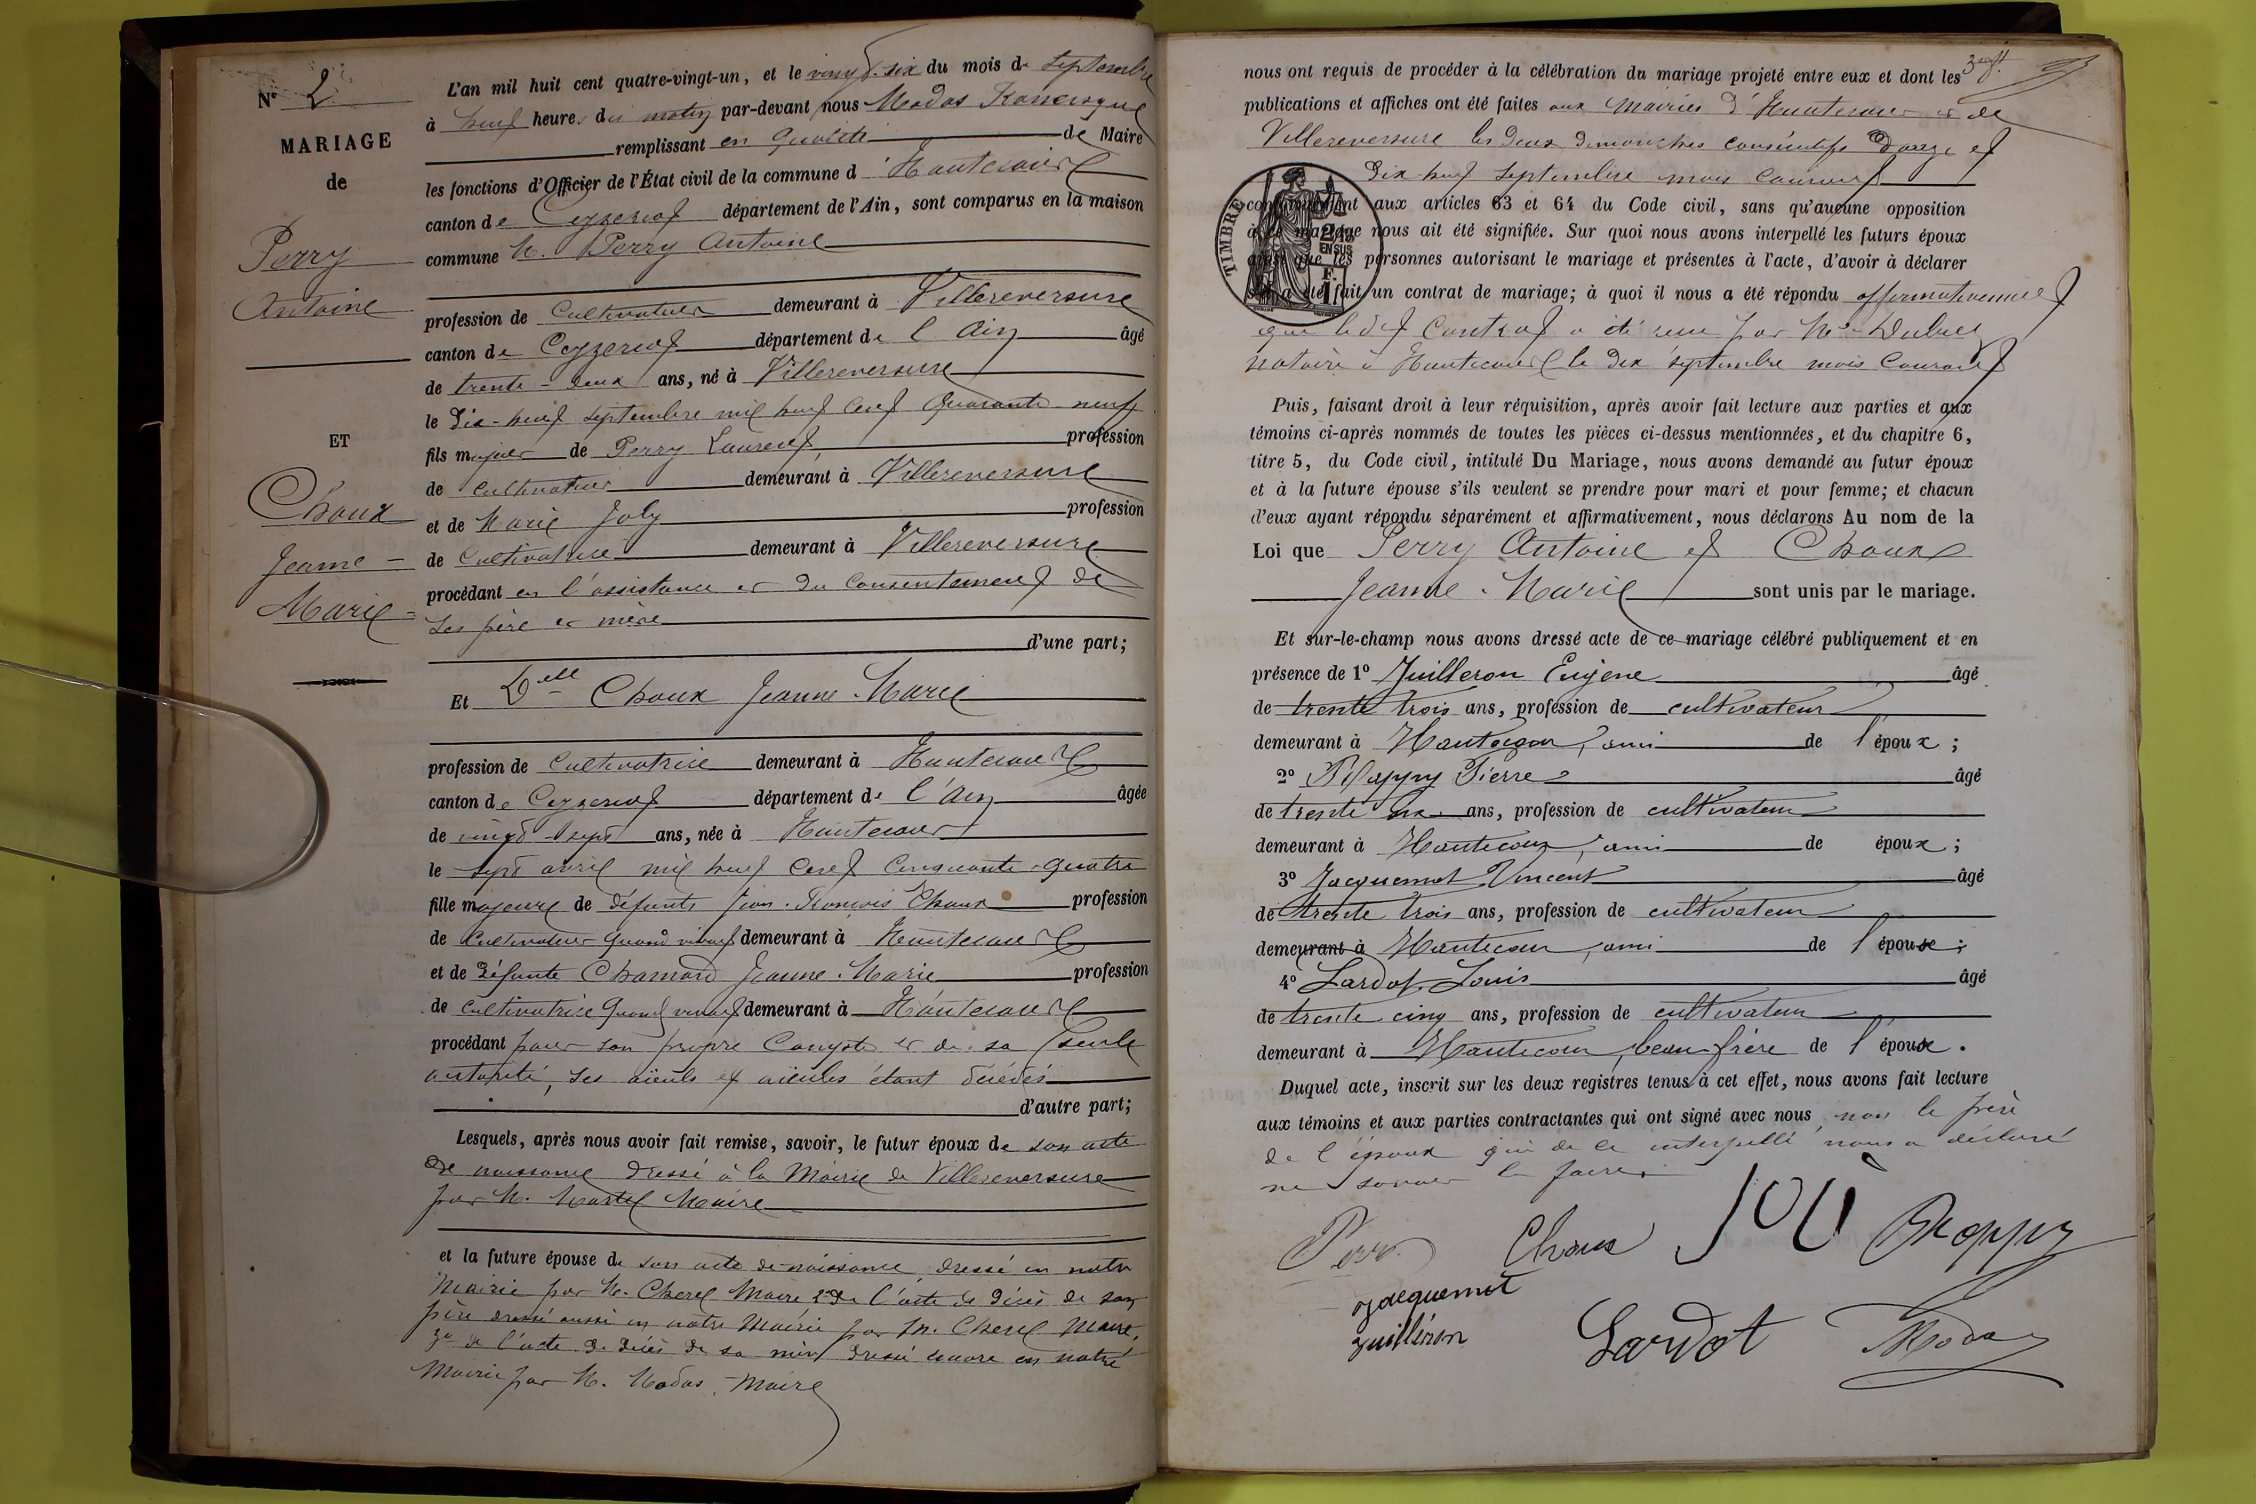 N° 2
MARIAGE
de
Perry
Antoine
ET
Choux
Jeanne
Marie
L'an mil huit cent quatre-vingt-un, et le vingt-six du mois de Septembre
à heures du matin par-devant nous Modas
remplissant en qualité de Maire
les fonctions d'Officier de l'État civil de la commune d'Hautecour
canton de Ceyzeriat département de l'Ain, sont comparus en la maison
commune M. Perry Antoine
profession de Cultivateur demeurant à Villereversure
canton de Ceyzeriat département de l'Ain âgé
de trente-deux ans, né à Villereversure
le Dix-huit Septembre mil huit cent quarante-neuf
fils majeur de Perry Laurent, profession
de cultivateur demeurant à Villereversure
et de Marie Joly profession
de Cultivatrice demeurant à Villereversure
procédant en l'assistance et du consentement de
Ses père et mère
d'une part;
Et Delle Choux Jeanne-Marie
profession de Cultivatrice demeurant à Hautecour
canton de Ceyzeriat département de l'Ain âgée
de vingt-sept ans, née à Hautecour
le sept avril mil huit cent cinquante-quatre
fille majeure de défunts Jean-François Choux profession
de Cultivateur quand vivait demeurant à Hautecour
et de défunte Jeanne-Marie profession
de cultivatrice quand vivait demeurant à Hautecour
procédant pour son propre compte et de sa seule
autorité, ses aïeuls et aïeules étant décédés
d'autre part;
Lesquels, après nous avoir fait remise, savoir, le futur époux de son acte
de naissance dressé à la Mairie de Villereversure
par M. Martel Maire
et la future épouse de son acte de naissance dressé en notre
Mairie par M. Cherel Maire 2° de l'acte de décès de son
père dressé aussi en notre Mairie par M. Cherel Maire,
3° de l'acte de décès de sa mère dressé encore en notre
Mairie par M. Modas, Maire
nous ont requis de procéder à la célébration du mariage projeté entre eux et dont les
publications et affiches ont été faites aux Mairies d'Hautecour et de
Villereversure les deux dimanches consécutifs onze et
Dix-huit Septembre mois courant
conformément aux articles 63 et 64 du Code civil, sans qu'aucune opposition
à ce mariage nous ait été signifiée. Sur quoi nous avons interpellé les futurs époux
ainsi que les personnes autorisant le mariage et présentes à l'acte, d'avoir à déclarer
s'il a été fait un contrat de mariage; à quoi il nous a été répondu affirmativement
que le dit Contrat a été reçu par Me
notaire à Hautecour le dix septembre mois courant
TIMBRE
2/10
EN SUS
F.
1
Puis, faisant droit à leur réquisition, après avoir fait lecture aux parties et aux
témoins ci-après nommés de toutes les pièces ci-dessus mentionnées, et du chapitre 6,
titre 5, du Code civil, intitulé Du Mariage, nous avons demandé au futur époux
et à la future épouse s'ils veulent se prendre pour mari et pour femme; et chacun
d'eux ayant répondu séparément et affirmativement, nous déclarons Au nom de la
Loi que Perry Antoine et Choux
Jeanne-Marie sont unis par le mariage.
Et sur-le-champ nous avons dressé acte de ce mariage célébré publiquement et en
présence de 1° Juilleron Eugène âgé
de trente trois ans, profession de cultivateur
demeurant à Hautecour, ami de l'époux;
2° Pierre âgé
de trente ans, profession de cultivateur
demeurant à Hautecour, ami de époux;
3° Jacquemet Vincent âgé
de trente trois ans, profession de cultivateur
demeurant à Hautecour, ami de l'épouse;
4° Lardot Louis âgé
de trente cinq ans, profession de cultivateur
demeurant à Hautecour, beau-frère de l'épouse.
Duquel acte, inscrit sur les deux registres tenus à cet effet, nous avons fait lecture
aux témoins et aux parties contractantes qui ont signé avec nous, non le père
de l'époux qui de ce interpellé nous a déclaré
ne savoir le faire.
Perry Choux Joli
Jacquemet
Juilléron Lardot Modas